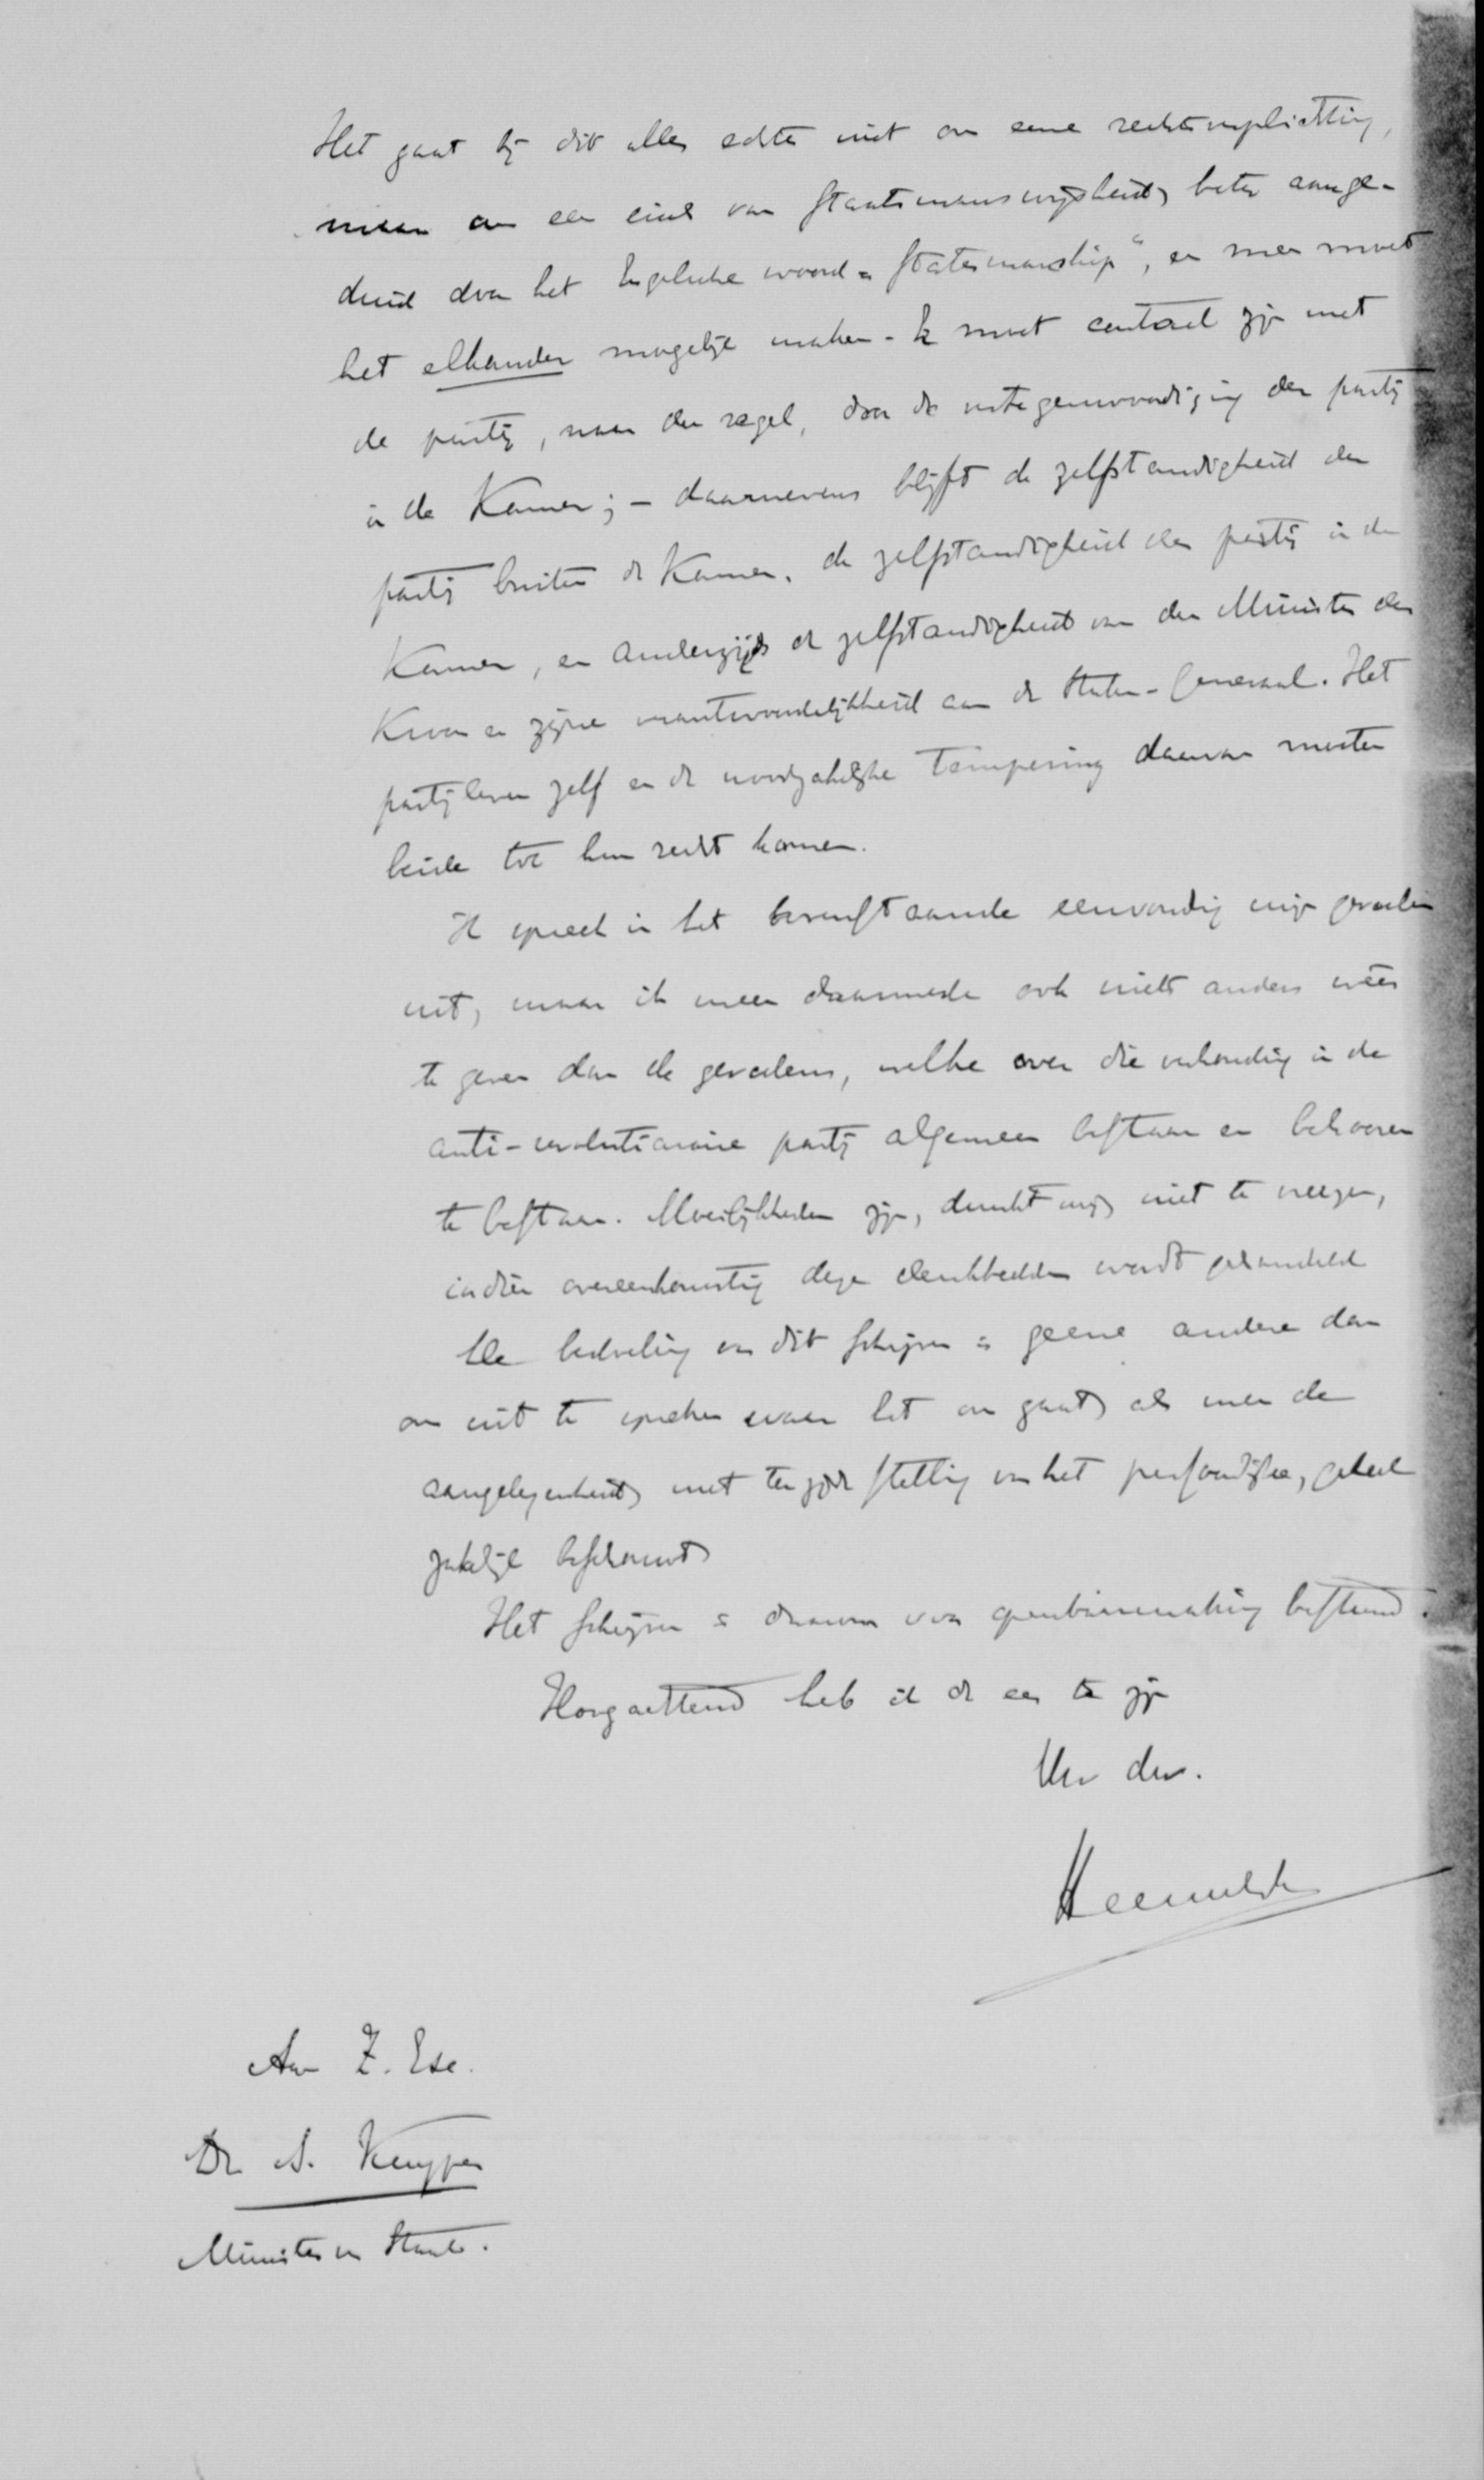 Het gaat bij dit alles echter niet om eene rechtsverplichting,
maar om een eisch van staatsmanswijsheid, beter aange-
duid door het Engelsche woord „Statesmanship", en men moet
het elkander mogelijk maken. Er moet contact zijn met
de partij, naar den regel, door de vertegenwoordiging der partij
in de Kamer; – daarnevens blijft de zelfstandigheid der
partij buiten de Kamer, de zelfstandigheid der partij in de
Kamer, en anderzijds de zelfstandigheid van den Minister der
Kroon en zijne verantwoordelijkheid aan de Staten-Generaal. Het
partijleven zelf en de noodzakelijke tempering daarvan moeten
beide tot hun recht komen.
Ik spreek in het bovenstaande eenvoudig mijn gevoelen
uit, maar ik meen daarmede ook niets anders weer
te geven dan de gevoelens, welke over die verhouding in de
anti-revolutionaire partij algemeen bestaan en behooren
te bestaan. Moeilijkheden zijn, dunkt mij, niet te vreezen,
indien overeenkomstig deze denkbeelden wordt gehandeld
De bedoeling van dit schrijven is geene andere dan
om uit te spreken waar het om gaat, als men de
aangelegenheid, met terzijdestelling van het persoonlijke, geheel
zakelijk beschouwt
Het schrijven is daarom voor openbaarmaking bestemd.
Hoogachtend heb ik de eer te zijn
Uw dw.
Heemskerk
Aan Z. Exc.
Dr A. Kuyper
Minister van Staat.